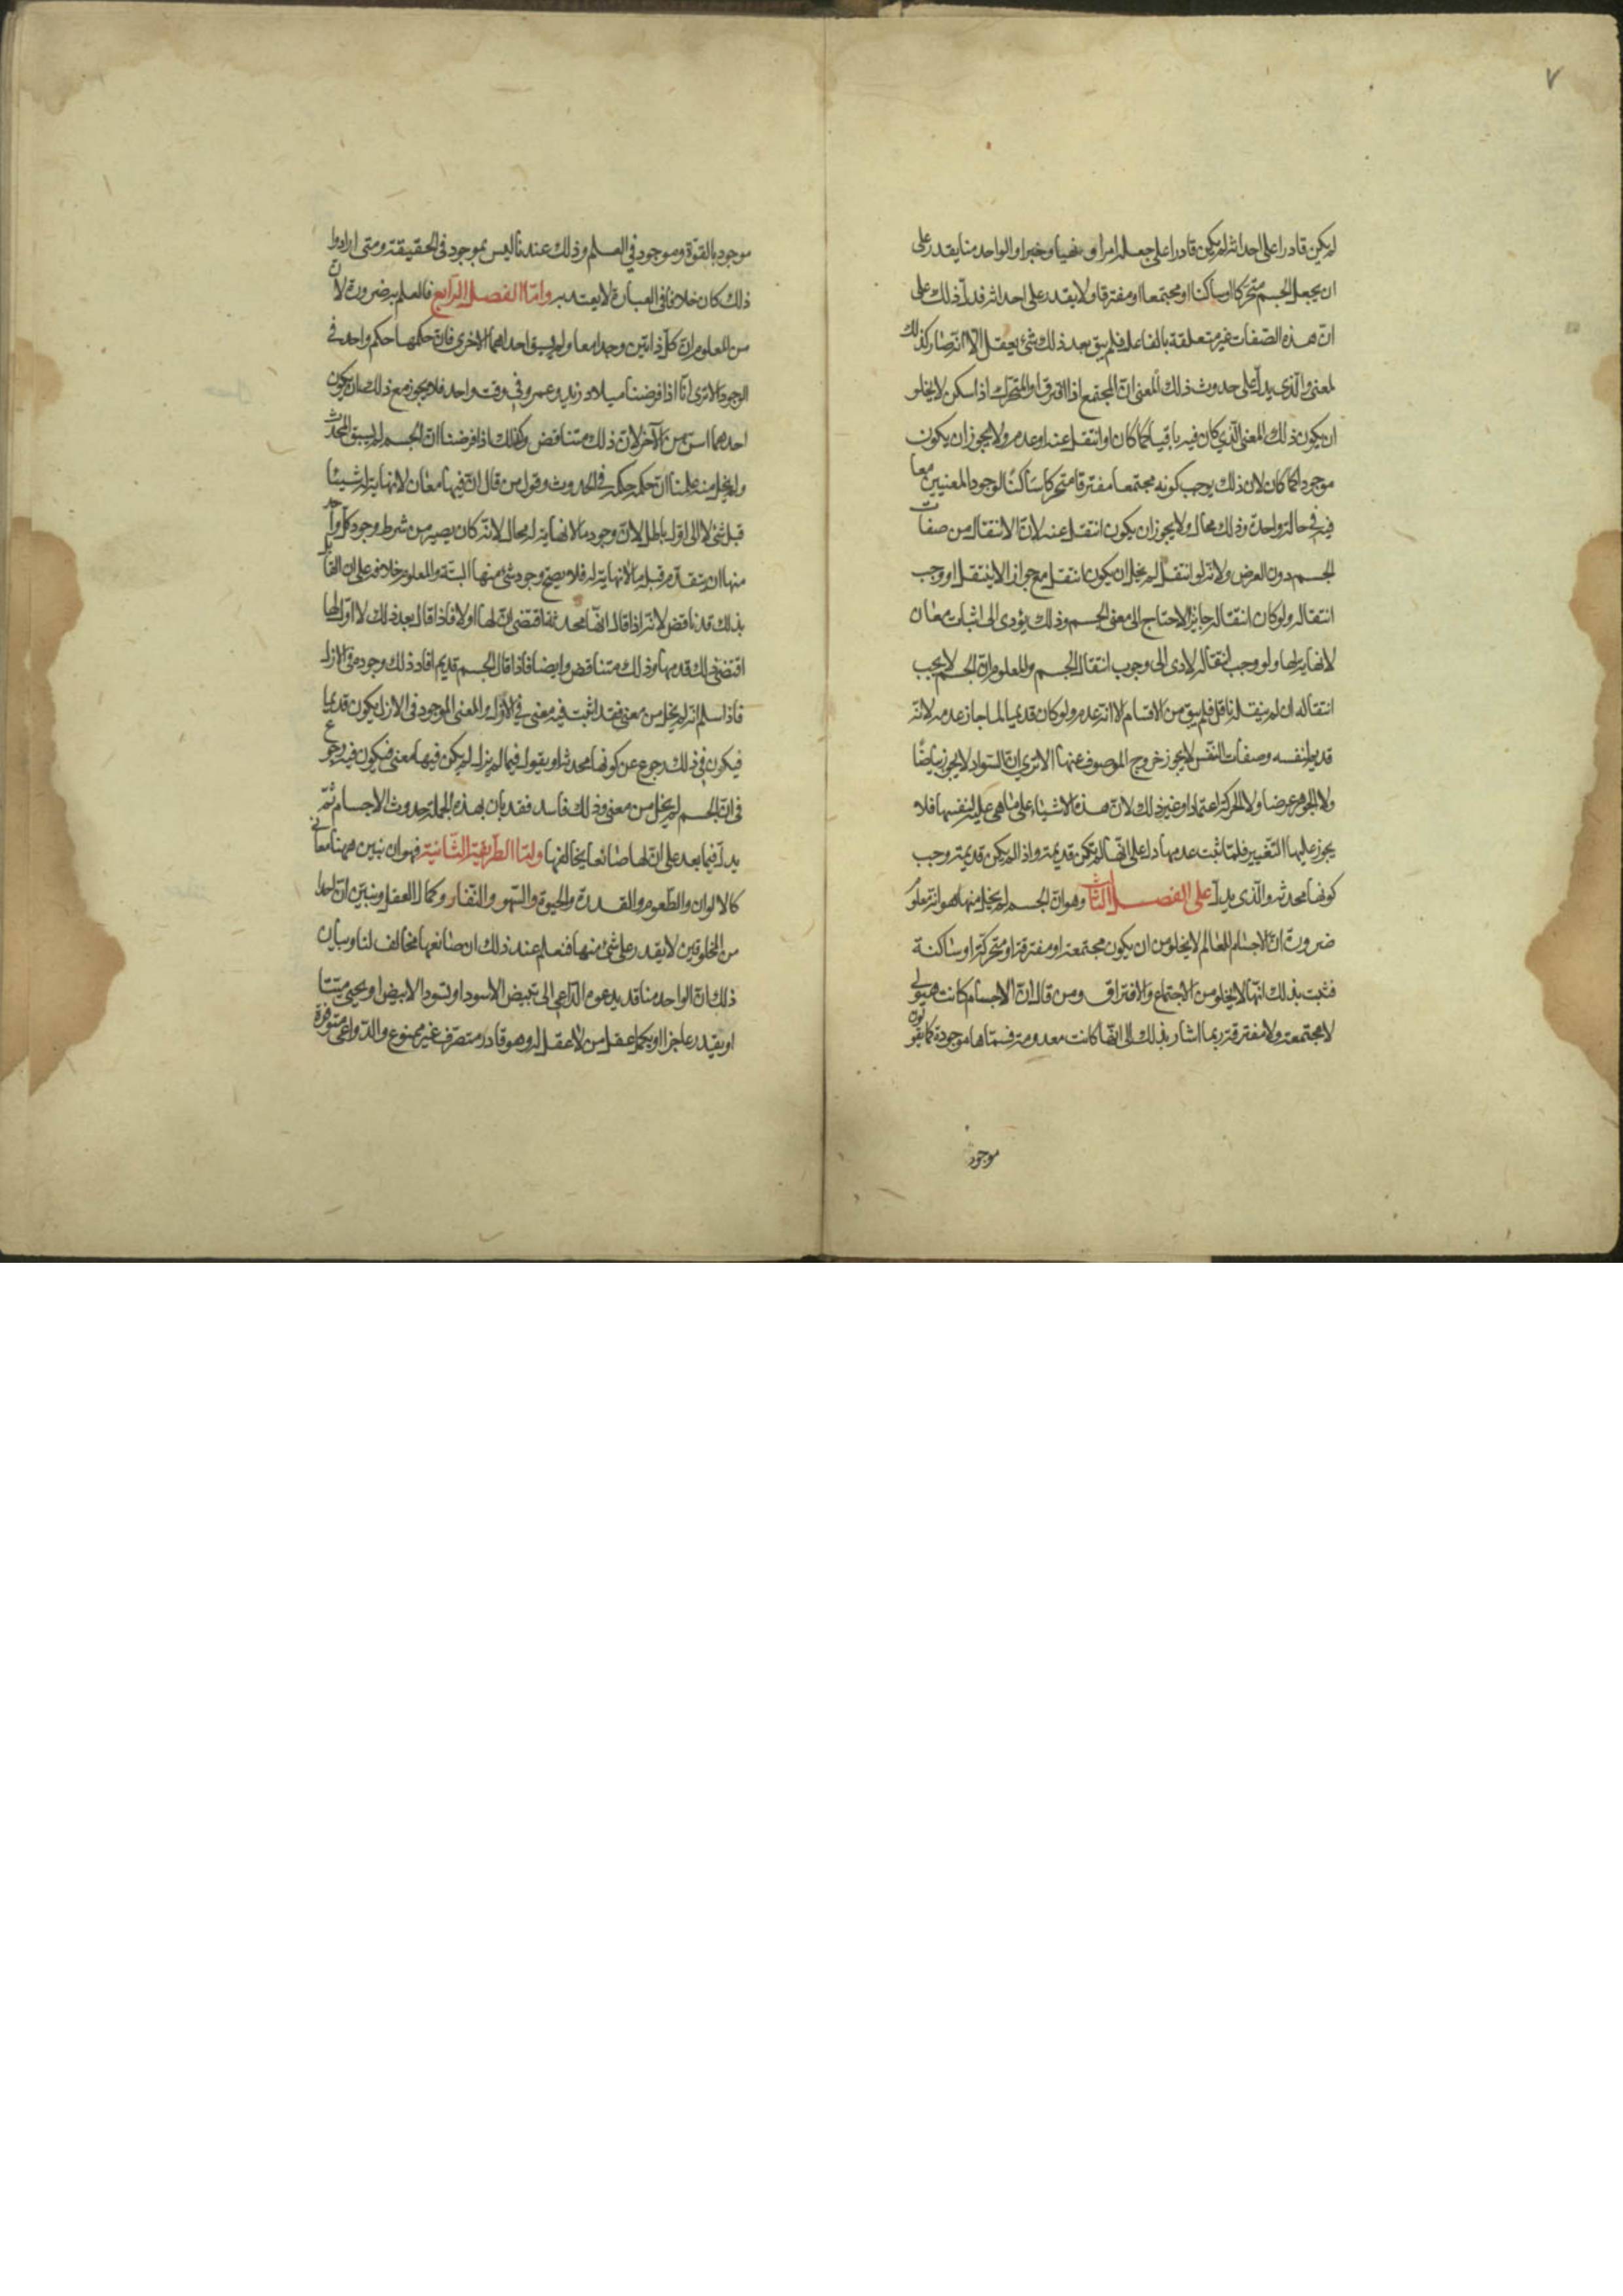 ٧
لم يكن قادرا على احداثه لم يكن قادرا على جعله امرا و نهيا و خبرا و الواحد منا يقدر على
ان يجعل الجسم متحركا او ساكنا او مجتمعا او مفترقا و لا يقدر على احداثه فدلّ ذلك على
انّ هذه الصفات غير متعلقة بالفاعل فلم يبق بعد ذلك شئ يعقل الّا انّه صار كذلك
لمعنى و الّذي يدلّ على حدوث ذلك المعنى انّ المجتمع اذا افترق او المتحرّك اذا سكن لا يخلو
ان يكون ذلك المعنى الّذي كان فيه باقيا كما كان او انتقل عنه او عدم و لا يجوز ان يكون
موجودا كما كان لان ذلك يوجب كونه مجتمعا مفترقا متحركا ساكنا لوجود المعنيين معا
فيه في حالة واحدة و ذلك محال و لا يجوز ان يكون انتقل عنه لانّ الانتقال من صفات
الجسم دون العرض و لانّه لو انتقل لم يخل ان يكون انتقل مع جواز الا ينتقل او وجب
انتقاله و لو كان انتقاله جايزا لاحتاج الى معنى الجسم و ذلك يؤدى الى اثبات معان
لا نهاية لها و لو وجب انتقاله لادى الى وجوب انتقال الجسم و المعلوم انّ الجسم لا يجب
انتقاله ان لم ينقله ناقل فلم يبق من الاقسام الا انه عدم و لو كان قديما لما جاز عدمه لانّه
قديم لنفسه و صفات النّفس لا يجوز خروج الموصوف عنها الا ترى انّ السّواد لا يجوز بياضًا
و لا الجوهر عرضا و لا الحركة اعتمادا و غير ذلك لانّ هذه الاشياء على ما هى عليه لنفسها فلا
يجوز عليها التّغيير فلمّا ثبت عدمها دل على انّها لم تكن قديمة و اذا لم يكن قديمة وجب
كونها محدثة و الّذى يدلّ على الفصل الثالث و هو انّ الجسم لم يخل منها هو انه معلوم
ضرورة انّ اجسام العالم لا يخلو من ان يكون مجتمعة او مفترقة او متحركة او ساكنة
فثبت بذلك انّها لا يخلو من الاجتماع و الافتراق و من قال انّ الاجسام كانت هيولى
لا مجتمعة و لا مفترقة ربما اشار بذلك الى انّها كانت معدومة فسمّاها موجودة كما يقولون
موجود
موجود بالقوّة و موجود في العلم و ذلك عندنا ليس بموجود فى الحقيقة و متى ارادوا
ذلك كان خلافا فى العبارة لا يعتد به و امّا الفصل الرّابع فالعلم به ضرورة لانّ
من المعلوم انّ كلّ ذاتين وجدا معا و لم يسبق احداهما الاخرى فانّ حكمهما حكم واحد فى
الوجود الا ترى انّا اذا فرضنا ميلاد زيد و عمرو فى وقت واحد فلا يجوز مع ذلك ان يكون
احدهما اسن من الآخر لانّ ذلك متناقض و كذلك اذا فرضنا انّ الجسم لم يسبق المحدث
و لم يخل منه علمنا انّ حكمه حكمه فى الحدوث و قول من قال انّ فيها معان لا نهاية له شيئا
قبل شئ لا الى اوّل باطل لانّ وجود ما لا نهاية له محال لانّه كان يصير من شرط وجود كلّ واحد
منها ان يتقدّم قبله ما لا نهاية له فلا يصح وجود شئ منها البتّة و المعلوم خلافه على ان القائل
بذلك قد ناقض لانّه اذا قال انّها محدثة اقتضى انّ لها اولا فاذا قال بعد ذلك لا اوّل لها
اقتضى ذلك قدمها و ذلك متناقض و ايضا فاذا قال الجسم قديم افاد ذلك وجوده فى الازل
فاذا سلم انّه لم يخل من معنى فقد اثبت فيه معنى فى الازل و المعنى الموجود فى الازل يكون قديما
فيكون فى ذلك رجوع عن كونها محدثة او يقول فيما لم يزل لم يكن فيها معنى فيكون فيه رجوع
فى انّ الجسم لم يخل من معنى و ذلك فاسد فقد بان بهذه الجملة حدوث الاجسام ثمّ
يدلّ فيما بعد على انّ لها صانعا يخالفها و امّا الطّريقة الثّانية فهو ان نبين ههنا معانى
كالالوان و الطّعوم و القدرة و الحيوة و الشهوة و النّفار و كمال العقل و نبيّن انّ احدا
من المخلوقين لا يقدر على شئ منها فنعلم عند ذلك ان صانعها مخالف لنا و بيان
ذلك انّ الواحد منا قد يدعوه الدّاعي الى تبييض الاسود او تسود الابيض او يحيى ميّتا
او يقدر عاجزا او يكمل عقل من لا عقل له و هو قادر متصرّف غير ممنوع و الدّواعى متوفرة